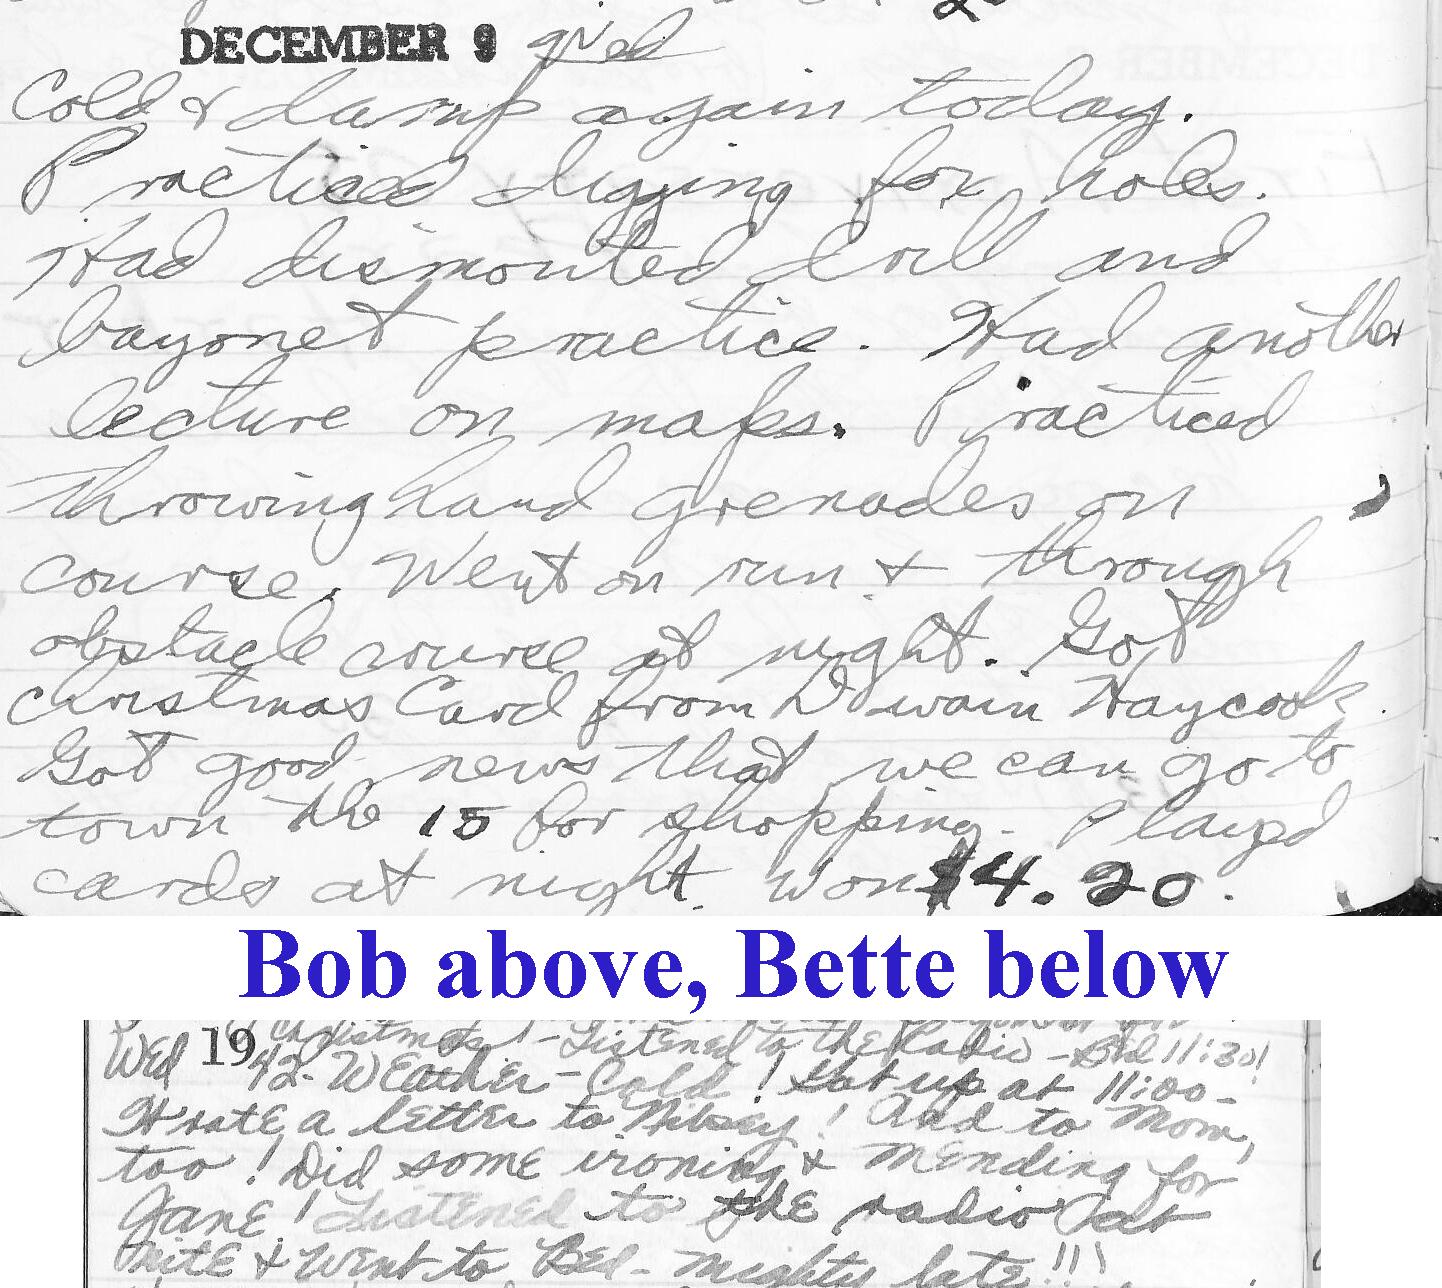 DECEMBER 9 Wed
Cold & damp again today.
Practiced digging fox holes.
Had dismouted drill and
bayonet practice. Had another
lecture on maps. Practiced
throwing hand grenades on
course. Went on run & through
obstacle course at night. Got
christmas Card from Dwain Haycock.
Got good news that we can go to
town the 15 for shopping. Played
cards at night. Won $4.20.
Bob above, Bette below
Christmas! - Listened to the Radio - Bed 11:30!
Wed 1942 - WEather - Cold! Got up at 11:00 -
WrotE a lEttEr to ! And to Mom,
too! Did somE ironing & MEnding for
JanE! ListEnEd to thE radio at
nitE & WEnt to BEd - mighty latE!!!